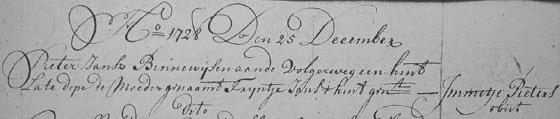 Ao 1728 Den 25 December
Pieter Jansz Binnewijsen aande Volgerweg een kint
Late dope de Moeder genaamt Trijntje Jans t kint gent — Jmmetje Pieters
dito obiit